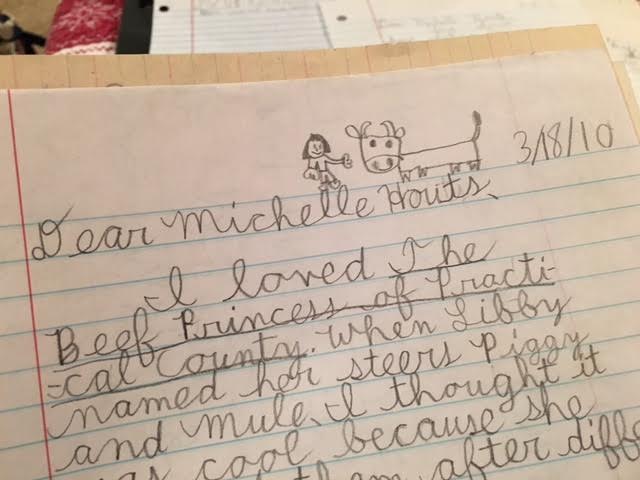 3/18/10
Dear Michelle Houts,
I loved The
Beef Princess of Practi-
-cal County. When Libby
named her steers piggy
and mule, I thought it
was cool because she
them after diffe